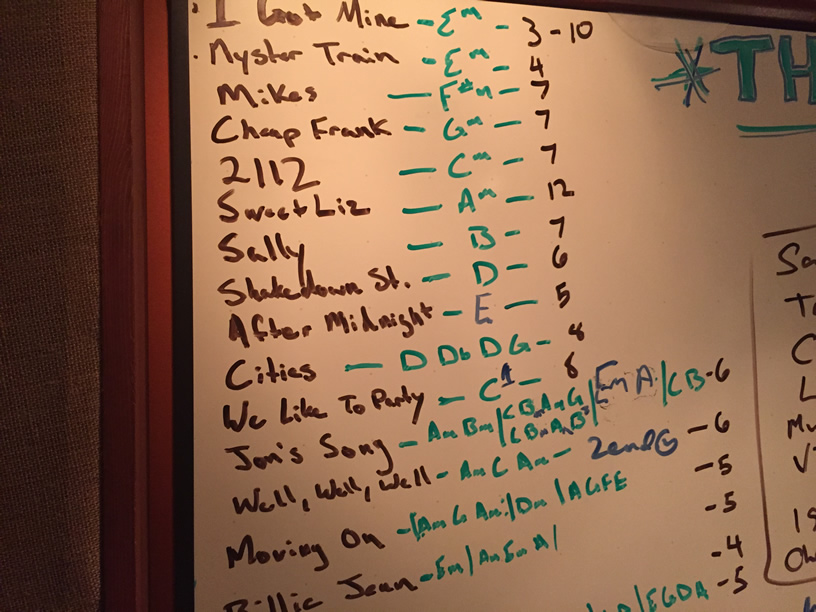 I Got Mine - Em - 3-10
Myster Train - Em - 4
Mikes - F#m - 7
Cheap Frank - Gm - 7
2112 - Cm - 7
Sweet Liz - Am - 12
Sally - B - 7
Shakedown St. - D - 6
After Midnight - E - 5
Cities - D Db D G - 8
We Like To Party - C - 6
Jon's Song - Am Bm | CBAmG | Em A | CB - 6
CBmAmB
Well, Well, Well - Am C Am - 2end G - 6
Moving On - [Am G Am:] Dm | AGFE - 5
Billie Jean - Em | Am Em A | - 5
- 4
FGDA - 5
*TH